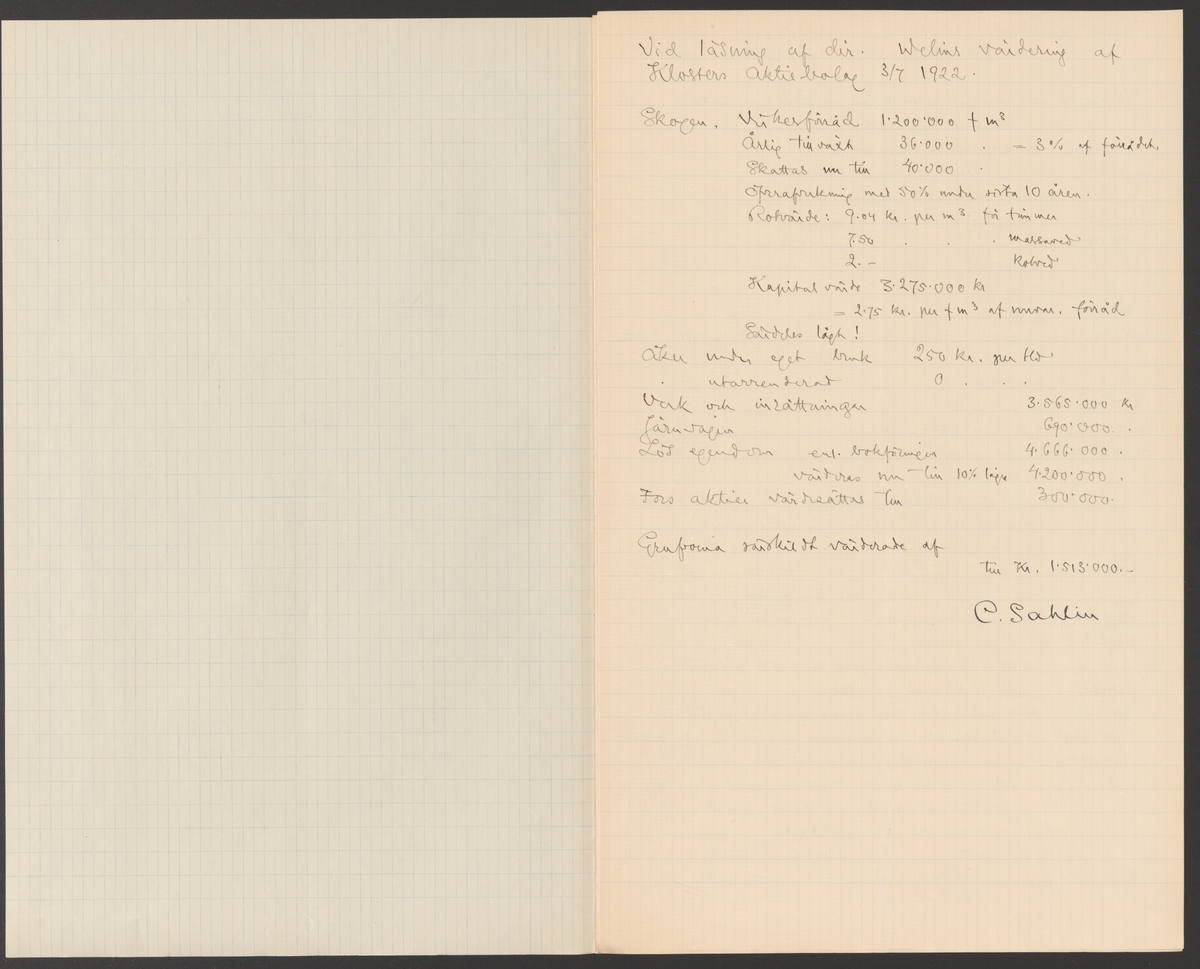 Vid läsning af dir. Welins värdering af
Klosters Aktiebolag 3/7 1922.
Skogen. Virkesförråd 1.200.000 f m³
Årlig tillväxt 36.000 . = 3% af förrådet
Skattas nu till 40.000 .
med 50% under sista 10 åren.
Rotvärde: 9.04 kr. per m³ för timmer
7.50 . . . massaved
2.- kolved
Kapitalvärde 3.275.000 kr
= 2.75 kr. per f m³ af nuvar. förråd
Särdeles lågt!
Åker under eget bruk 250 kr. per tld
. utarrenderad 0 . . .
Verk och inrättningar 3.565.000 kr
Järnvägen 690.000. .
Lös egendom enl. bokföringen 4.666.000 .
värderas nu till 10% lägre 4.200.000 .
Fors aktier värdesättas till 300.000.
Grufvorna särskildt värderade af
till Kr. 1.513.000.-
C. Sahlin